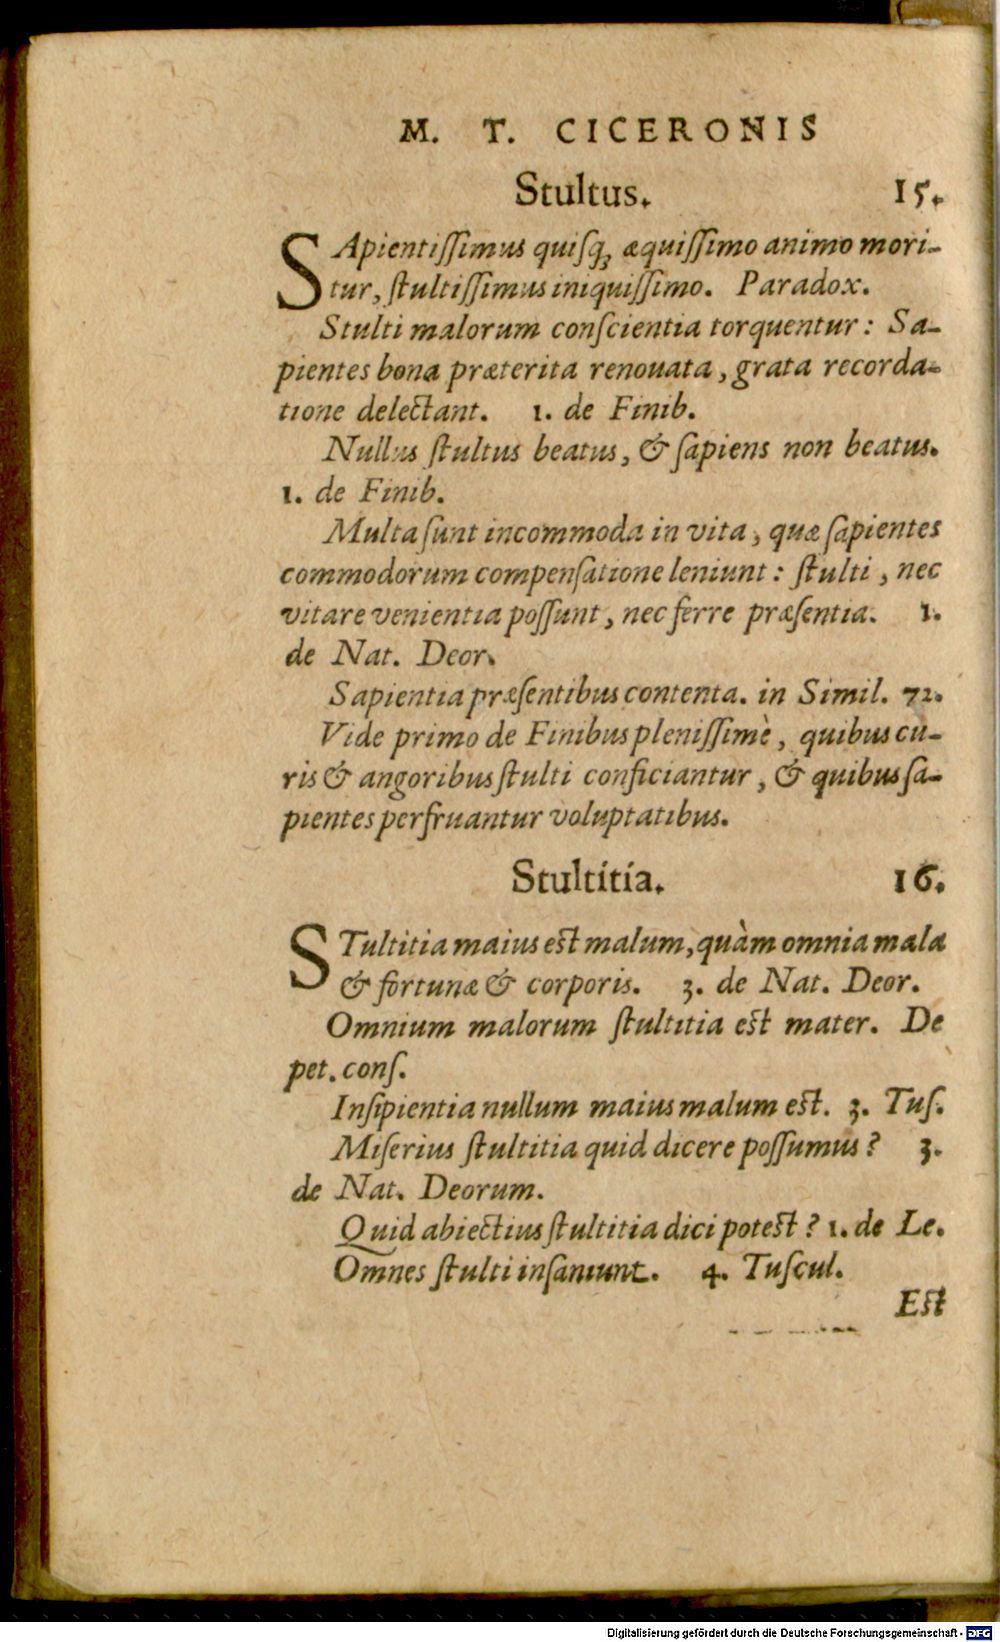 M. T. CICERONIS
Stultus. 15.
SApientiſſimus quiſq; æquiſſimo animo mori-
tur, ſtultiſſimus iniquiſſimo. Paradox.
Stulti malorum conſcientia torquentur: Sa-
pientes bona præterita renouata, grata recorda-
tione delectant. 1. de Finib.
Nullus ſtultus beatus, & ſapiens non beatus.
1. de Finib.
Multa ſunt incommoda in vita, quæ ſapientes
commodorum compenſatione leniunt: ſtulti, nec
vitare venientia poſſunt, nec ferre præſentia. 1.
de Nat. Deor.
Sapientia præſentibus contenta. in Simil. 72.
Vide primo de Finibus pleniſſimè, quibus cu-
ris & angoribus ſtulti conficiantur, & quibus ſa-
pientes perfruantur voluptatibus.
Stultitia. 16.
STultitia maius est malum, quàm omnia mala
& fortunæ & corporis. 3. de Nat. Deor.
Omnium malorum ſtultitia est mater. De
pet. conſ.
Inſipientia nullum maius malum est. 3. Tuſ.
Miſerius ſtultitia quid dicere poſſumus? 3.
de Nat. Deorum.
Quid abiectius ſtultitia dici potest? 1. de Le.
Omnes ſtulti inſaniunt. 4. Tuſcul.
Est
Digitalisierung gefördert durch die Deutsche Forschungsgemeinschaft - DFG